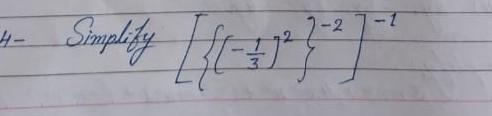 4- Simplify [{(-1/3)²}⁻²]⁻¹